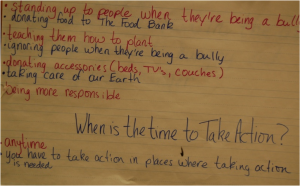 • standing up to people when they're being a bully
• donating food to The Food Bank
• teaching them how to plant
• ignoring people when they're being a bully
• donating accessories (beds, TVs, couches)
• taking care of our Earth
• being more responsible
When is the time to Take Action?
• anytime
• you have to take action in places where taking action
is needed